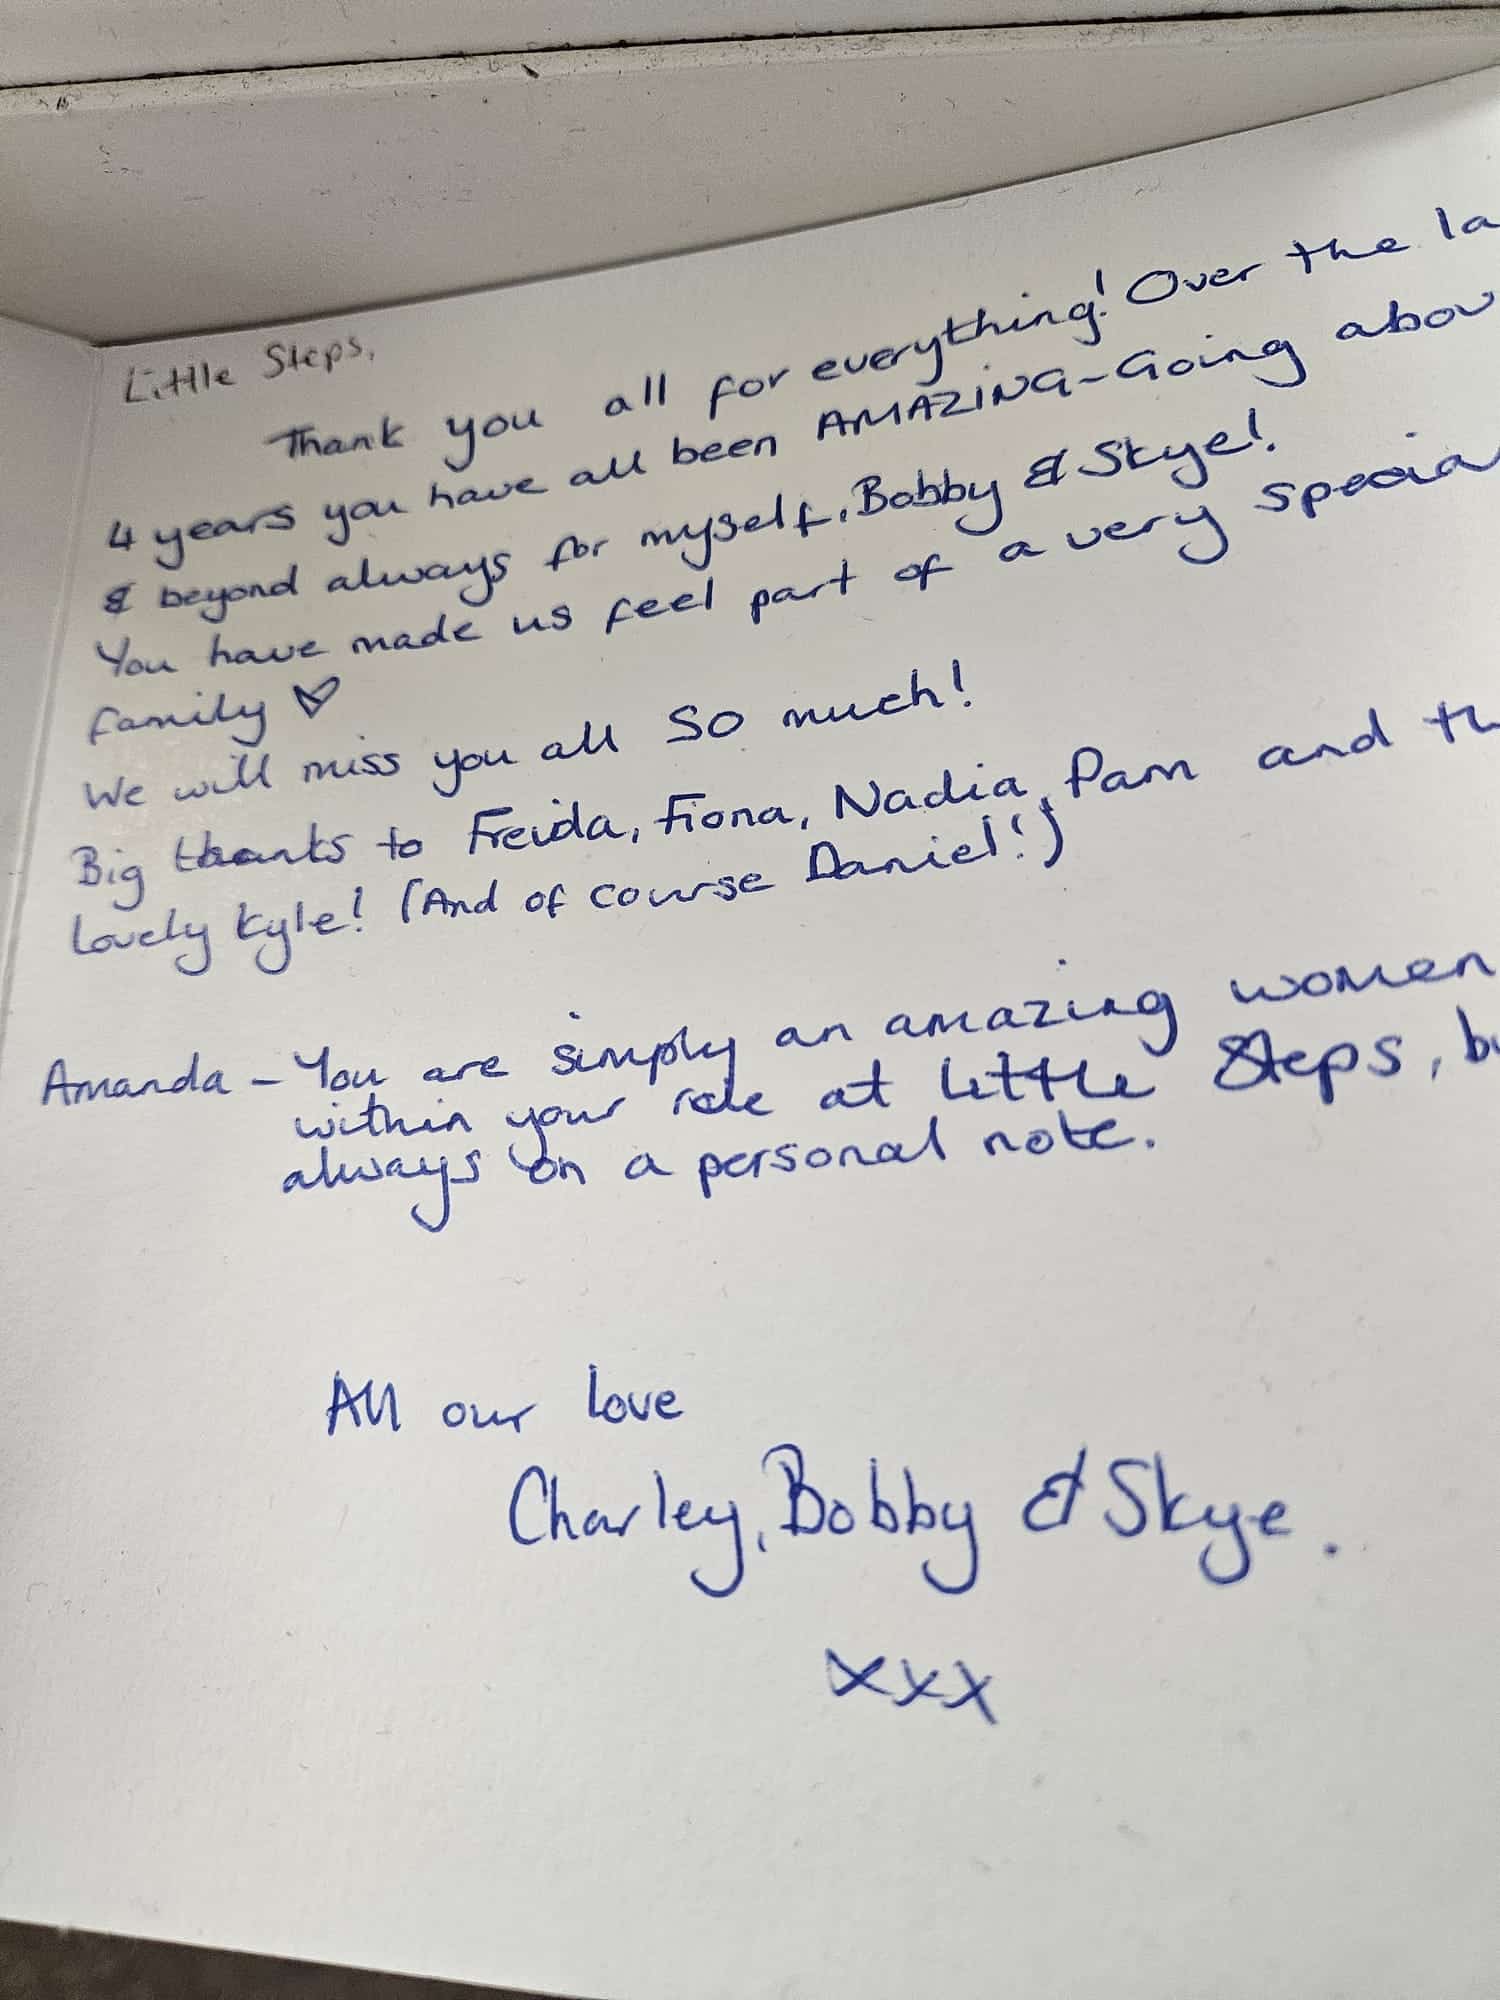 Little Steps,
Thank you all for everything! Over the la
4 years you have all been AMAZING-Going abov
& beyond always for myself, Bobby & Skye!.
You have made us feel part of a very special
family ♡
We will miss you all SO much!
Big thanks to Freida, Fiona, Nadia, Pam and th
lovely Kyle! (And of course Daniel!)
Amanda - You are simply an amazing women
within your role at Little Steps, bu
always on a personal note.
All our love
Charley, Bobby & Skye.
xxx